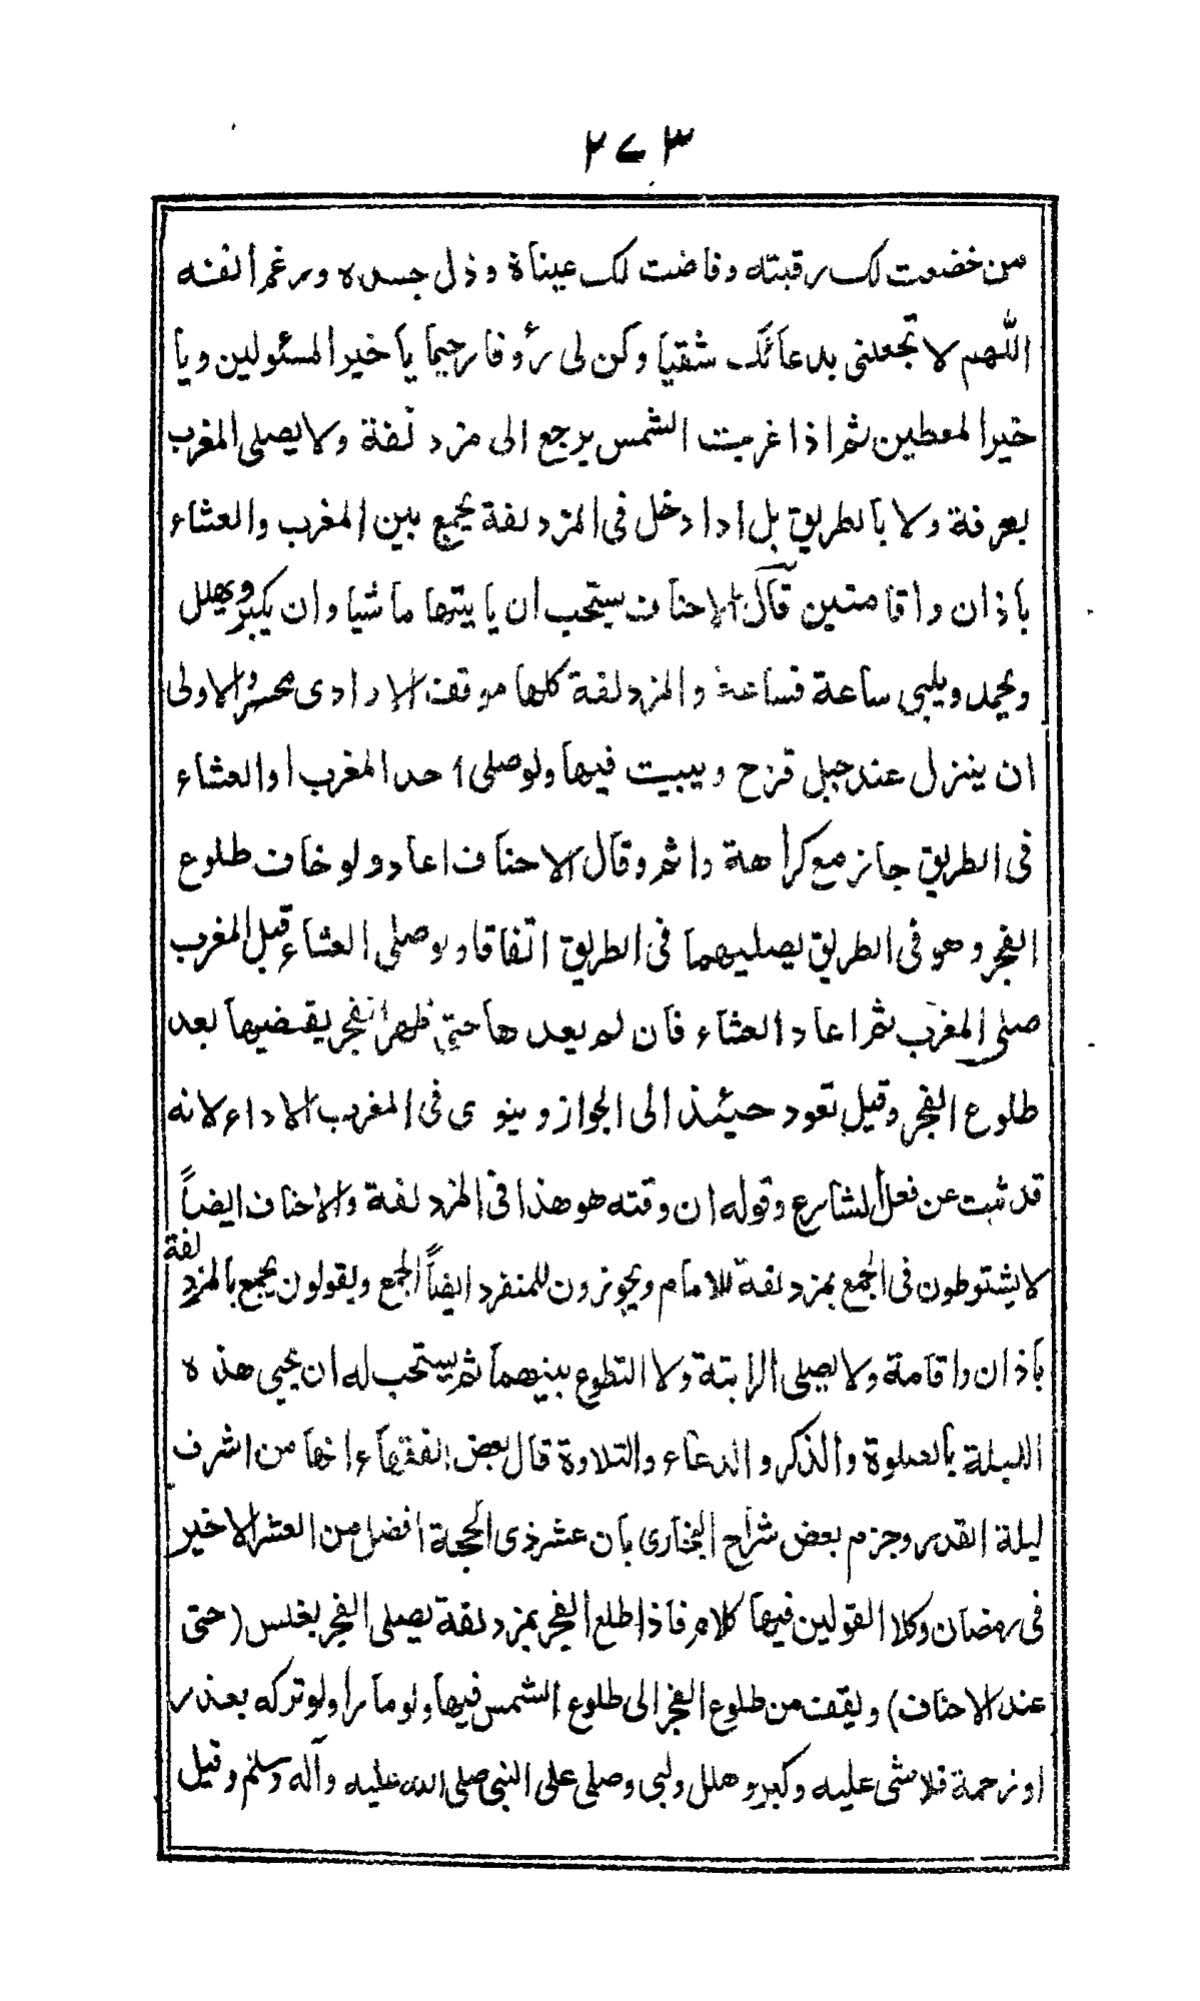 ٢٧٣
من خضعت لك رقبته وفاضت لك عيناة وذل جسده ورغم أنفه
اللهم لا تجعلنى بدعائك شقيا وكن لى رؤوفا رحيما يا خير المسئولين ويا
خير المعطين ثم اذا غربت الشمس يرجع الى مزدلفة ولا يصلى المغرب
بعرفة ولا بالطريق بل ادا دخل فى المزدلفة يجمع بين المغرب والعشاء
باذان واقامتين قال الاحناف يستحب ان ياتيها ماشيا وان يكبر ويهلل
ويحمد ويلبى ساعة فساعة والمزدلفة كلها موقف الا وادى محسر والاولى
ان ينزل عند جبل قزح ويبيت فيها ولو صلى احد المغرب او العشاء
فى الطريق جاز مع كراهة واثم وقال الاحناف اعاد ولو خاف طلوع
الفجر وهو فى الطريق يصليهما فى الطريق اتفاقا ولو صلى العشاء قبل المغرب
صلى المغرب ثم اعاد العشاء فان لم يعدها حتى ظهر الفجر يقضيها بعد
طلوع الفجر وقيل تعود حيئذ الى الجواز وينوى فى المغرب الاداء لانه
قد ثبت عن فعل الشارع وقوله ان وقته هو هذا فى المزدلفة والاحناف ايضاً
لا يشتوطون فى الجمع بمزدلفة للامام ويجوزون للمنفرد ايضاً الجمع ويقولون يجمع بالمزدلفة
باذان واقامة ولا يصلى الراتبة ولا التطوع بينهما ثم يستحب له ان يحيى هذه
الليلة بالصلوة والذكر والدعاء والتلاوة قال بعض الفقهاء انها من اشرف
ليلة القدر وجزم بعض شراح البخارى بان عشر ذى الحجة افضل من العشر الاخير
فى رمضان وكلا القولين فيها كلام فاذا طلع الفجر بمزدلفة يصلى الفجر بغلس (حتى
عند الاحناف) ويقف من طلوع الفجر الى طلوع الشمس فيها ولو مارا ولو تركه بعذر
او زحمة فلا شى عليه وكبر وهلل ولبى وصلى على النبى صلى الله عليه وآله وسلم وقيل